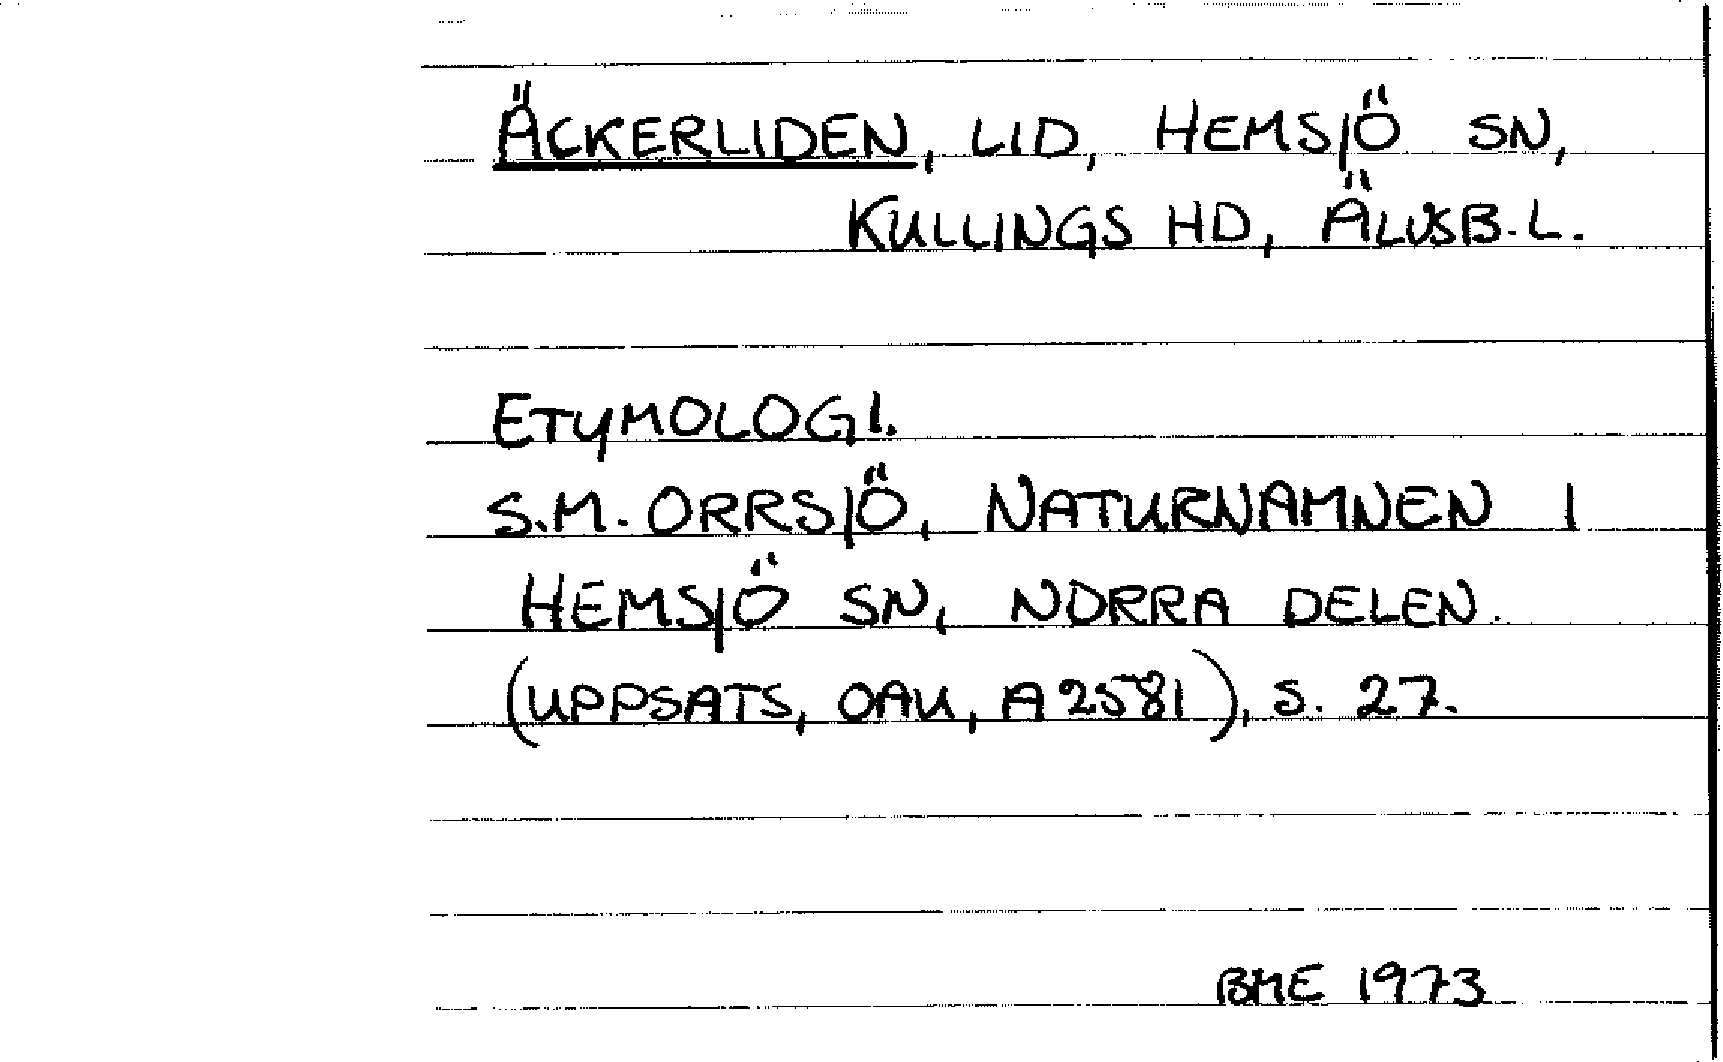 ÄCKERLIDEN, LID, HEMSJÖ SN,
KULLINGS HD, ÄLVSB.L.
ETYMOLOGI.
S.M. ORRSJÖ, NATURNAMNEN I
HEMSJÖ SN, NORRA DELEN.
(UPPSATS, OAU, A 2581), S. 27.
BME 1973